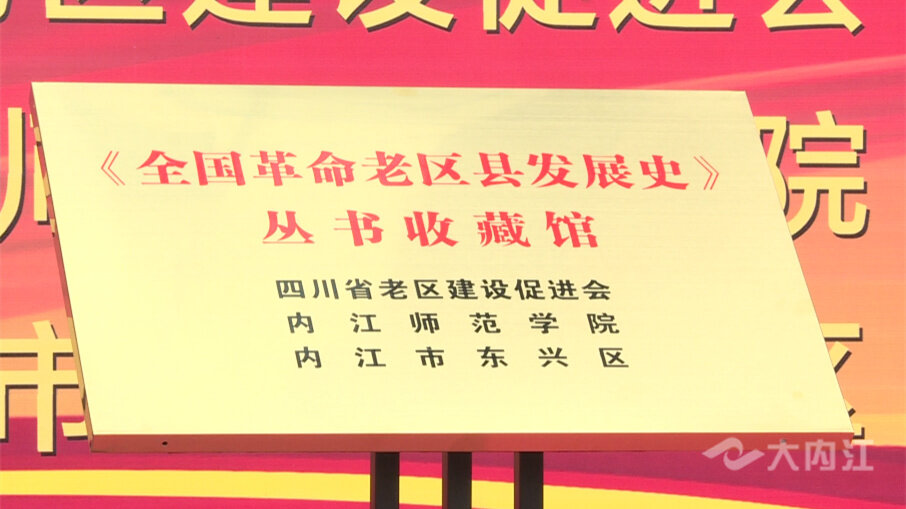 区建设促进会
《全国革命老区县发展史》
丛书收藏馆
四川省老区建设促进会
内江师范学院
内江市东兴区
师
院
市
区
大内江